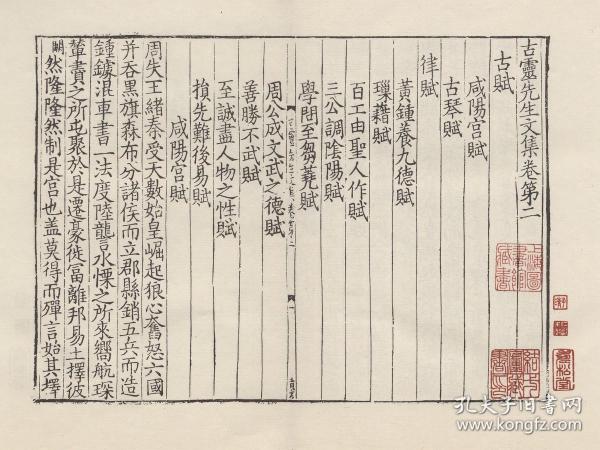 古靈先生文集卷第二
古賦
咸陽宫賦
古琴賦
律賦
黃鍾養九德賦
璅藉賦
百工由聖人作賦
三公調陰陽賦
學問至芻蕘賦
周公成文武之德賦
善勝不武賦
至誠盡人物之性賦
損先難後易賦
咸陽宮賦
周失王緒秦受天數始皇崛起狼心奮怒六國
并吞黒旗森布分諸侯而立郡縣銷五兵而造
鍾鐻混車書一法度陸讋水慄之所來嚮航琛
蓋賮之所屯聚於是遷豪徙富離邦易土擇彼
然隆隆然制是宫也盖莫得而殫言始其擇
上海圖書館藏書
孔夫子旧书网
www.kongfz.com